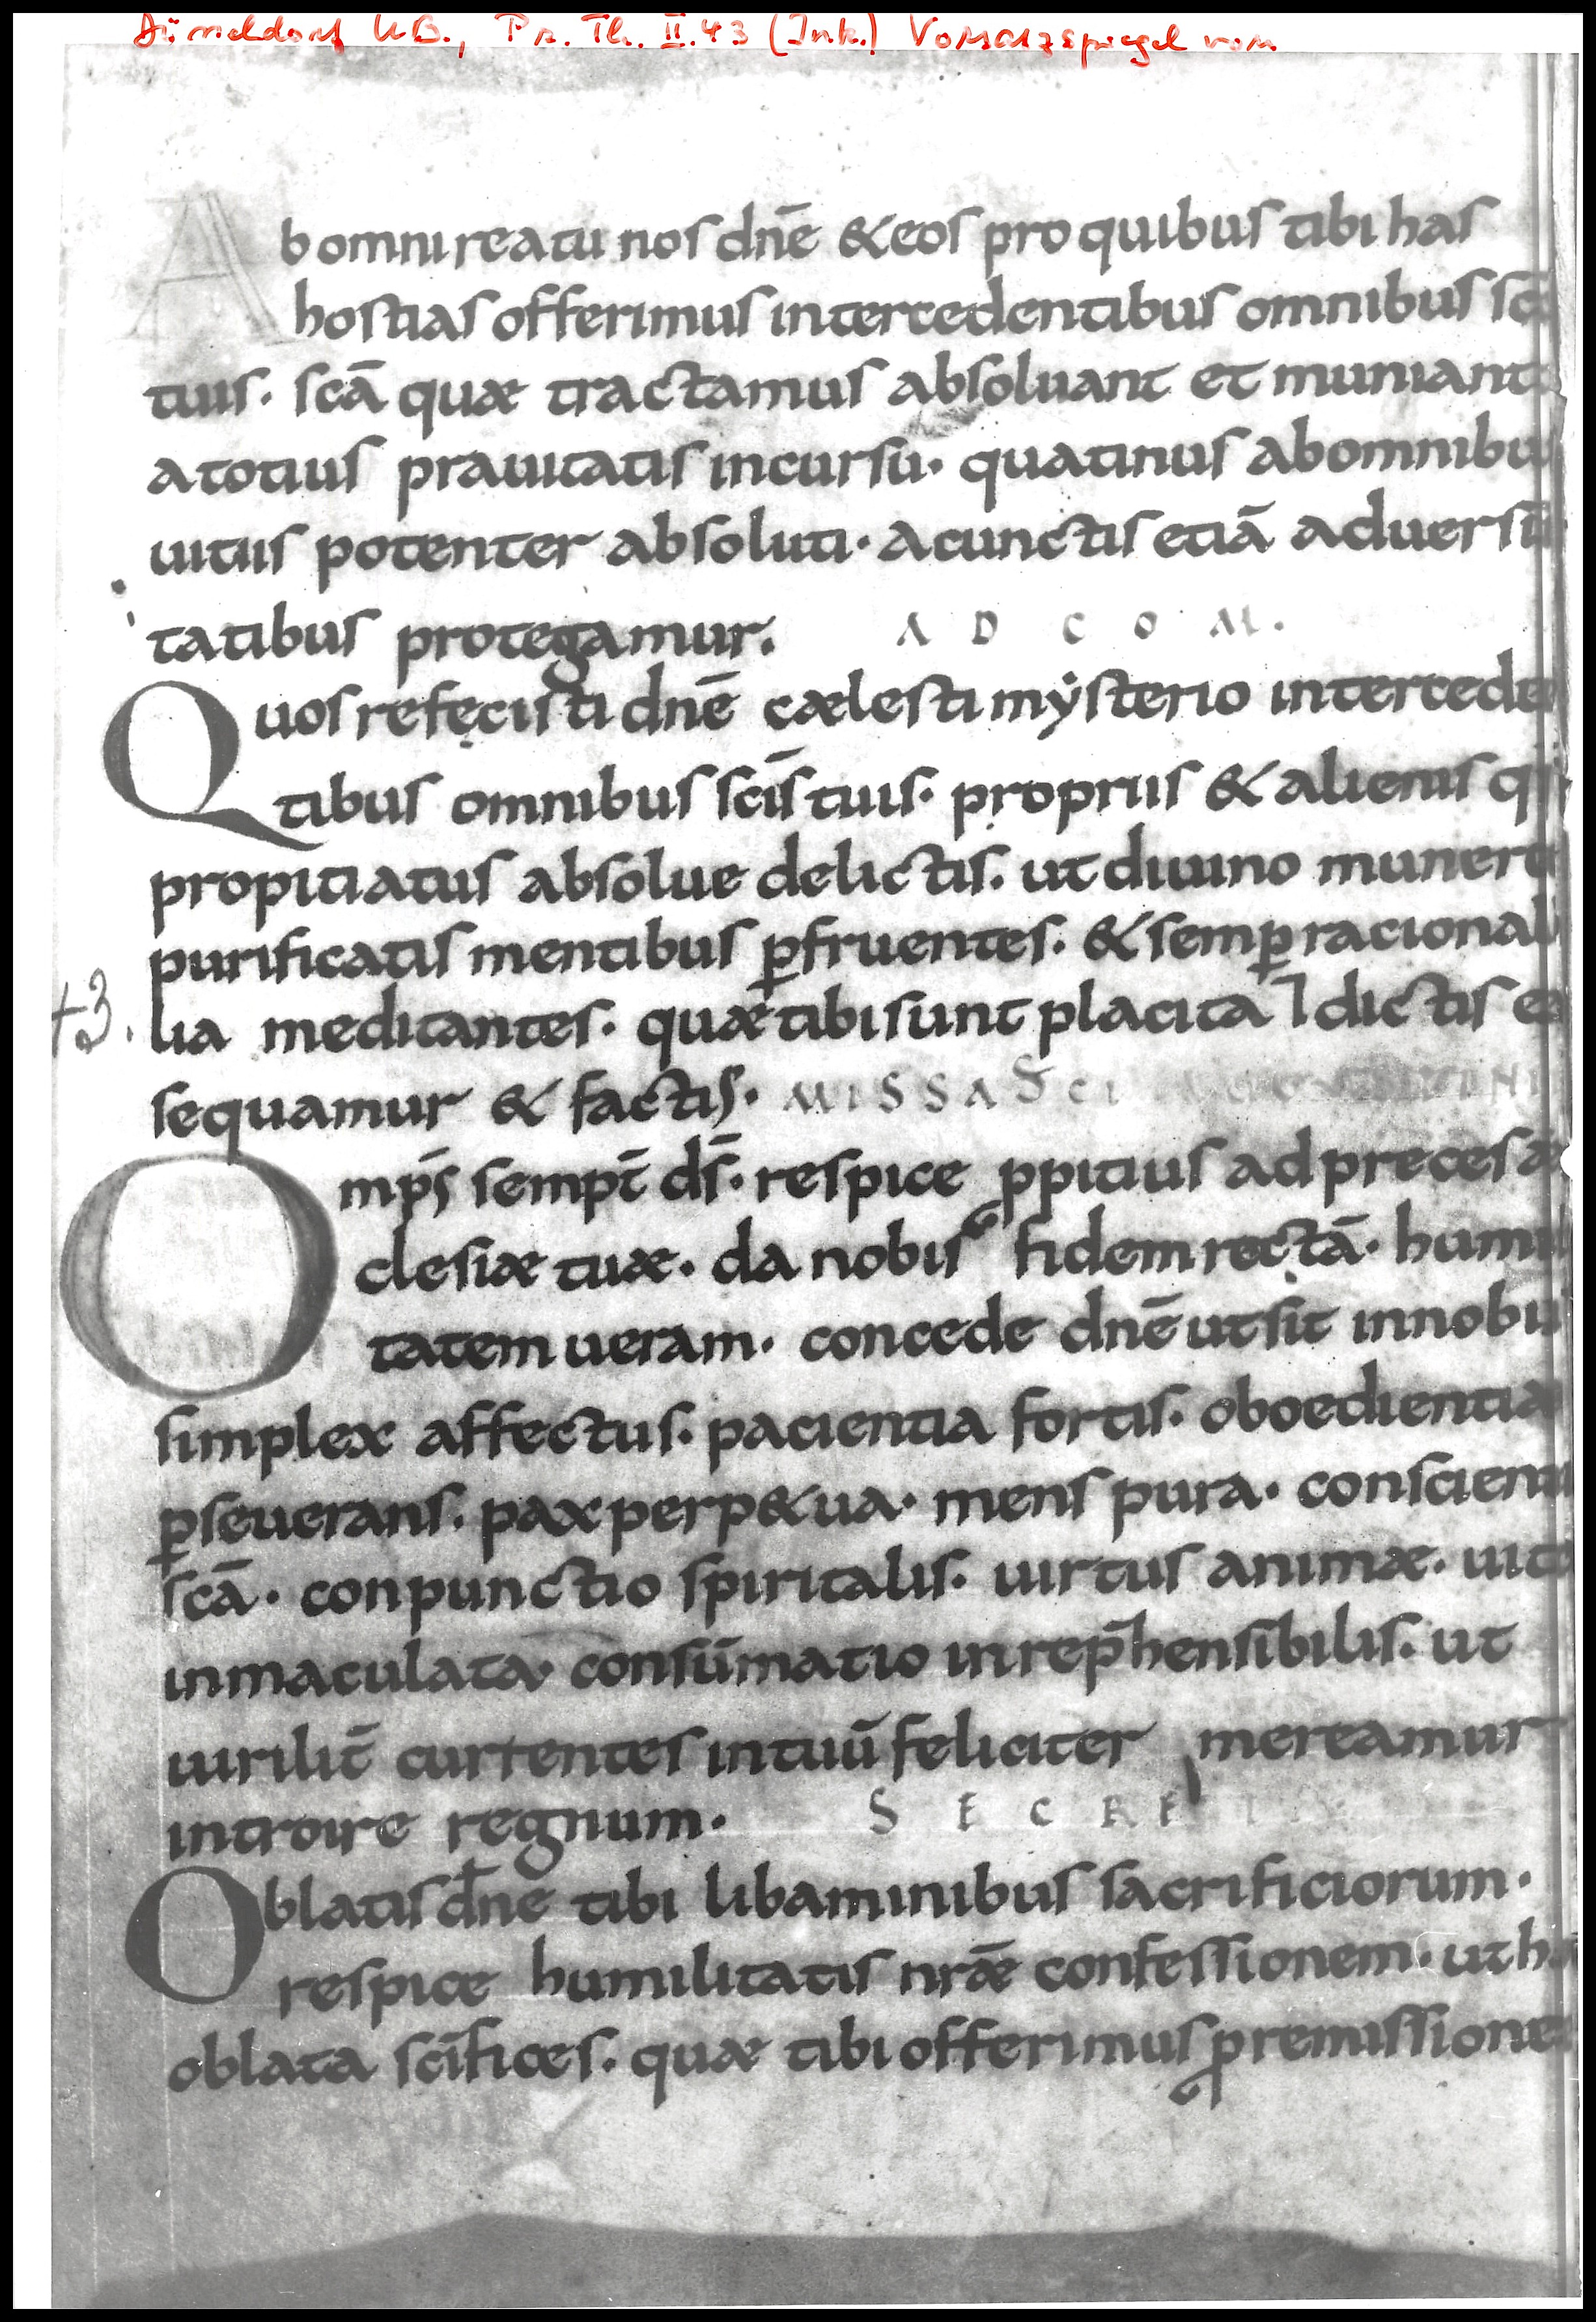 Düsseldorf UB., Pr. Th. II. 43 (Ink.) Vorsatzspiegel vorn
Ab omni reatu nos dnē & eos pro quibus tibi has
hostias offerimus intercedentibus omnibus scī
tuis · scā quæ tractamus absoluant et muniant
a totius prauitatis incursu · quatinus ab omnibu
uitiis potenter absoluti · a cunctis etiā aduersi
tatibus protegamur. AD COM.
Quos refęcisti dnē cælesti mẏsterio intercede
tibus omnibus scīs tuis · propriis & alienis
propitiatus absolue delictis · ut diuino munere
purificatis mentibus ꝑfruentes · & semꝑ racional
43. lia meditantes · quæ tibi sunt placita ⁊ dictis
sequamur & factis · MISSA SCI
Omps̄ sempt̄ ds̄ · respice ꝓpitius ad preces
clesiæ tuæ · da nobis fidem rectā · humi
tatem ueram · concede dnē ut sit in nobis
simplex affectus · pacientia fortis · oboedientia
ꝑseuerans · pax perp&ua · mens pura · conscienti
scā · conpunctio spiritalis · uirtus animæ · uita
inmaculata · consūmatio inrep̄hensibilis · ut
uirilit̄ currentes in tuū feliciter mereamur
introire regnum · SECRET
Oblatis dn̄e tibi libaminibus sacrificiorum ·
respice humilitatis nrǣ confessionem · ut h
oblata scīfices · quæ tibi offerimus ꝓ remissione